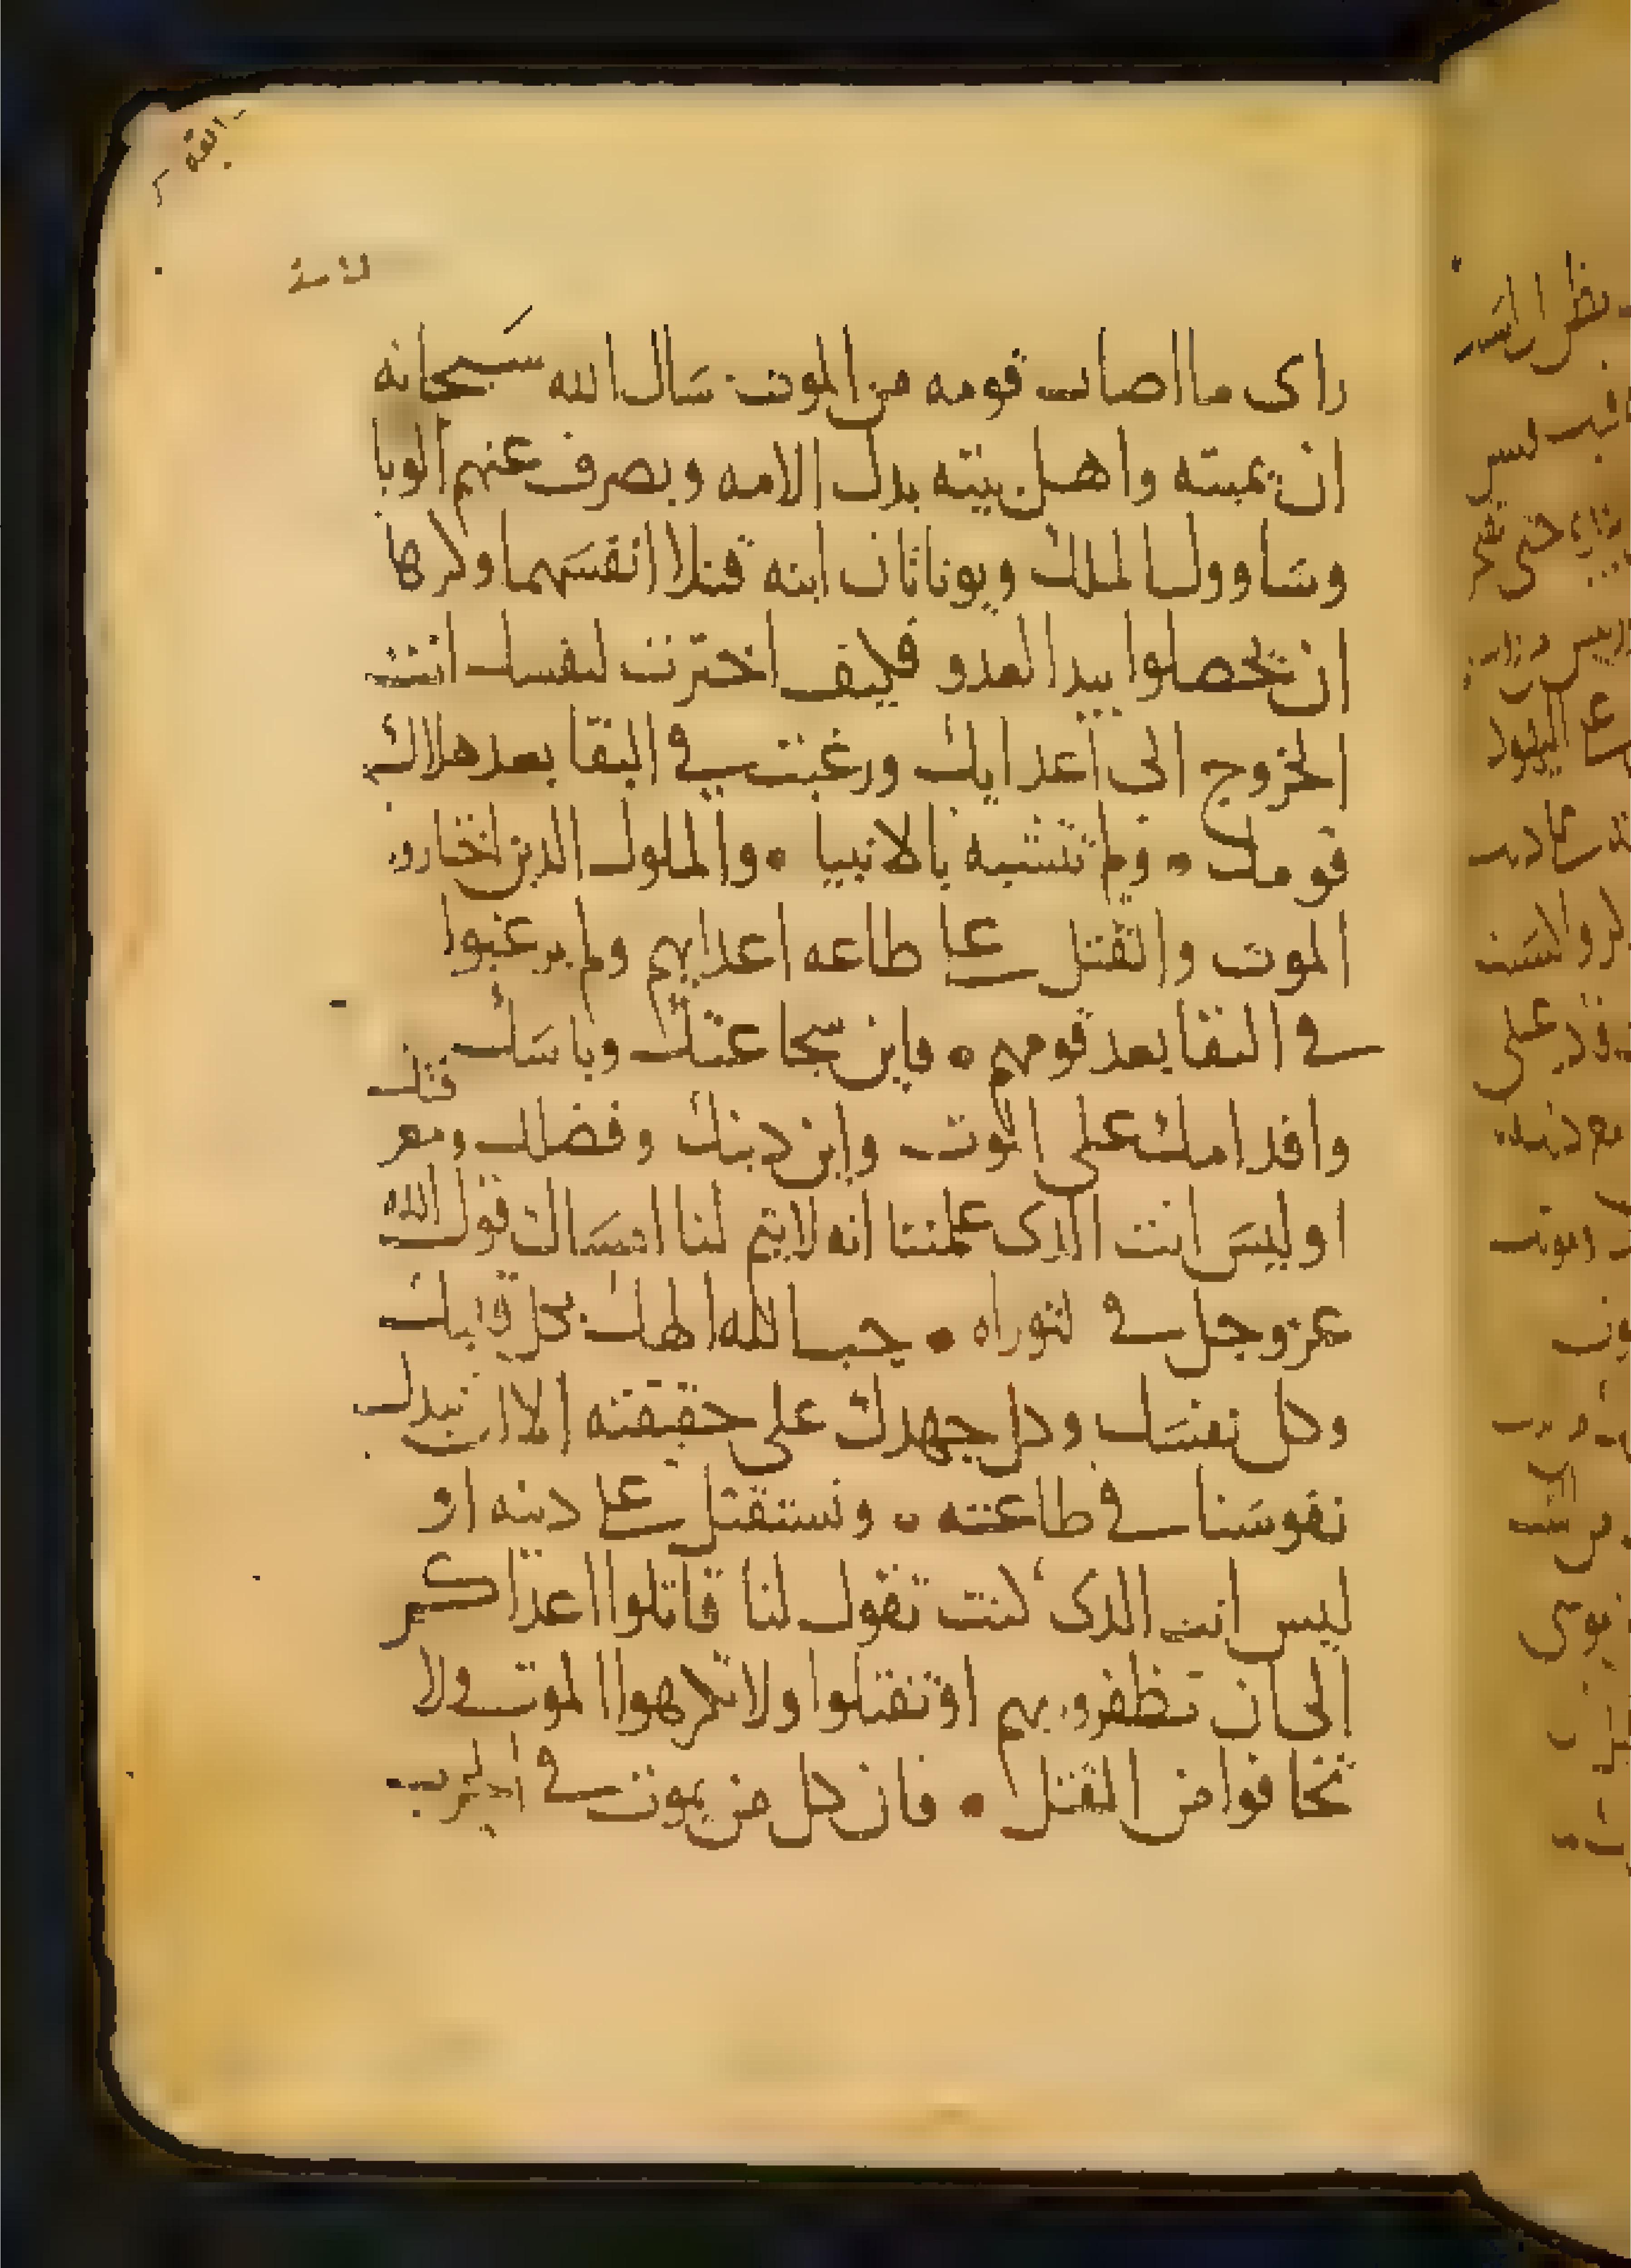 راى ما اصاب قومه من الموت سَال الله سَبحانه
ان يميته واهل بيته بدل الامه ويصرف عنهم الوبا
وسَاوول الملك ويوناتان ابنه قتلا انفسَهما وكرها
ان يحصلوا بيد العدو فكيف اخترت لنفسك انت
الخروج الى اعدايك ورغبت في البقا بعد هلاك
قومك • ولم تتشبه بالانبيا • والملوك الدين اختارو
الموت والقتل على طاعه اعدايهم ولم يرغبوا
في البقا بعد قومهم • فاين سجاعتك وباسَك
واقدامك على الموت واين دينك وفضلك
اوليسَ انت الدى علمتنا انه لا يتم لنا امتسَاك قول الله
عز وجل في التوراه • حب الله الهك بكل قلبك
وكل نفسَك وكل جهدك على حقيقته الا ان نبدل
نفوسَنا في طاعته • ونستقتل على دينه او
ليس انت الدى كنت تقول لنا قاتلوا اعداكم
الى ان تظفرو بهم او تقتلوا ولا تكرهوا الموت ولا
تخافوا من القتل • فان كل من يموت في الحرب